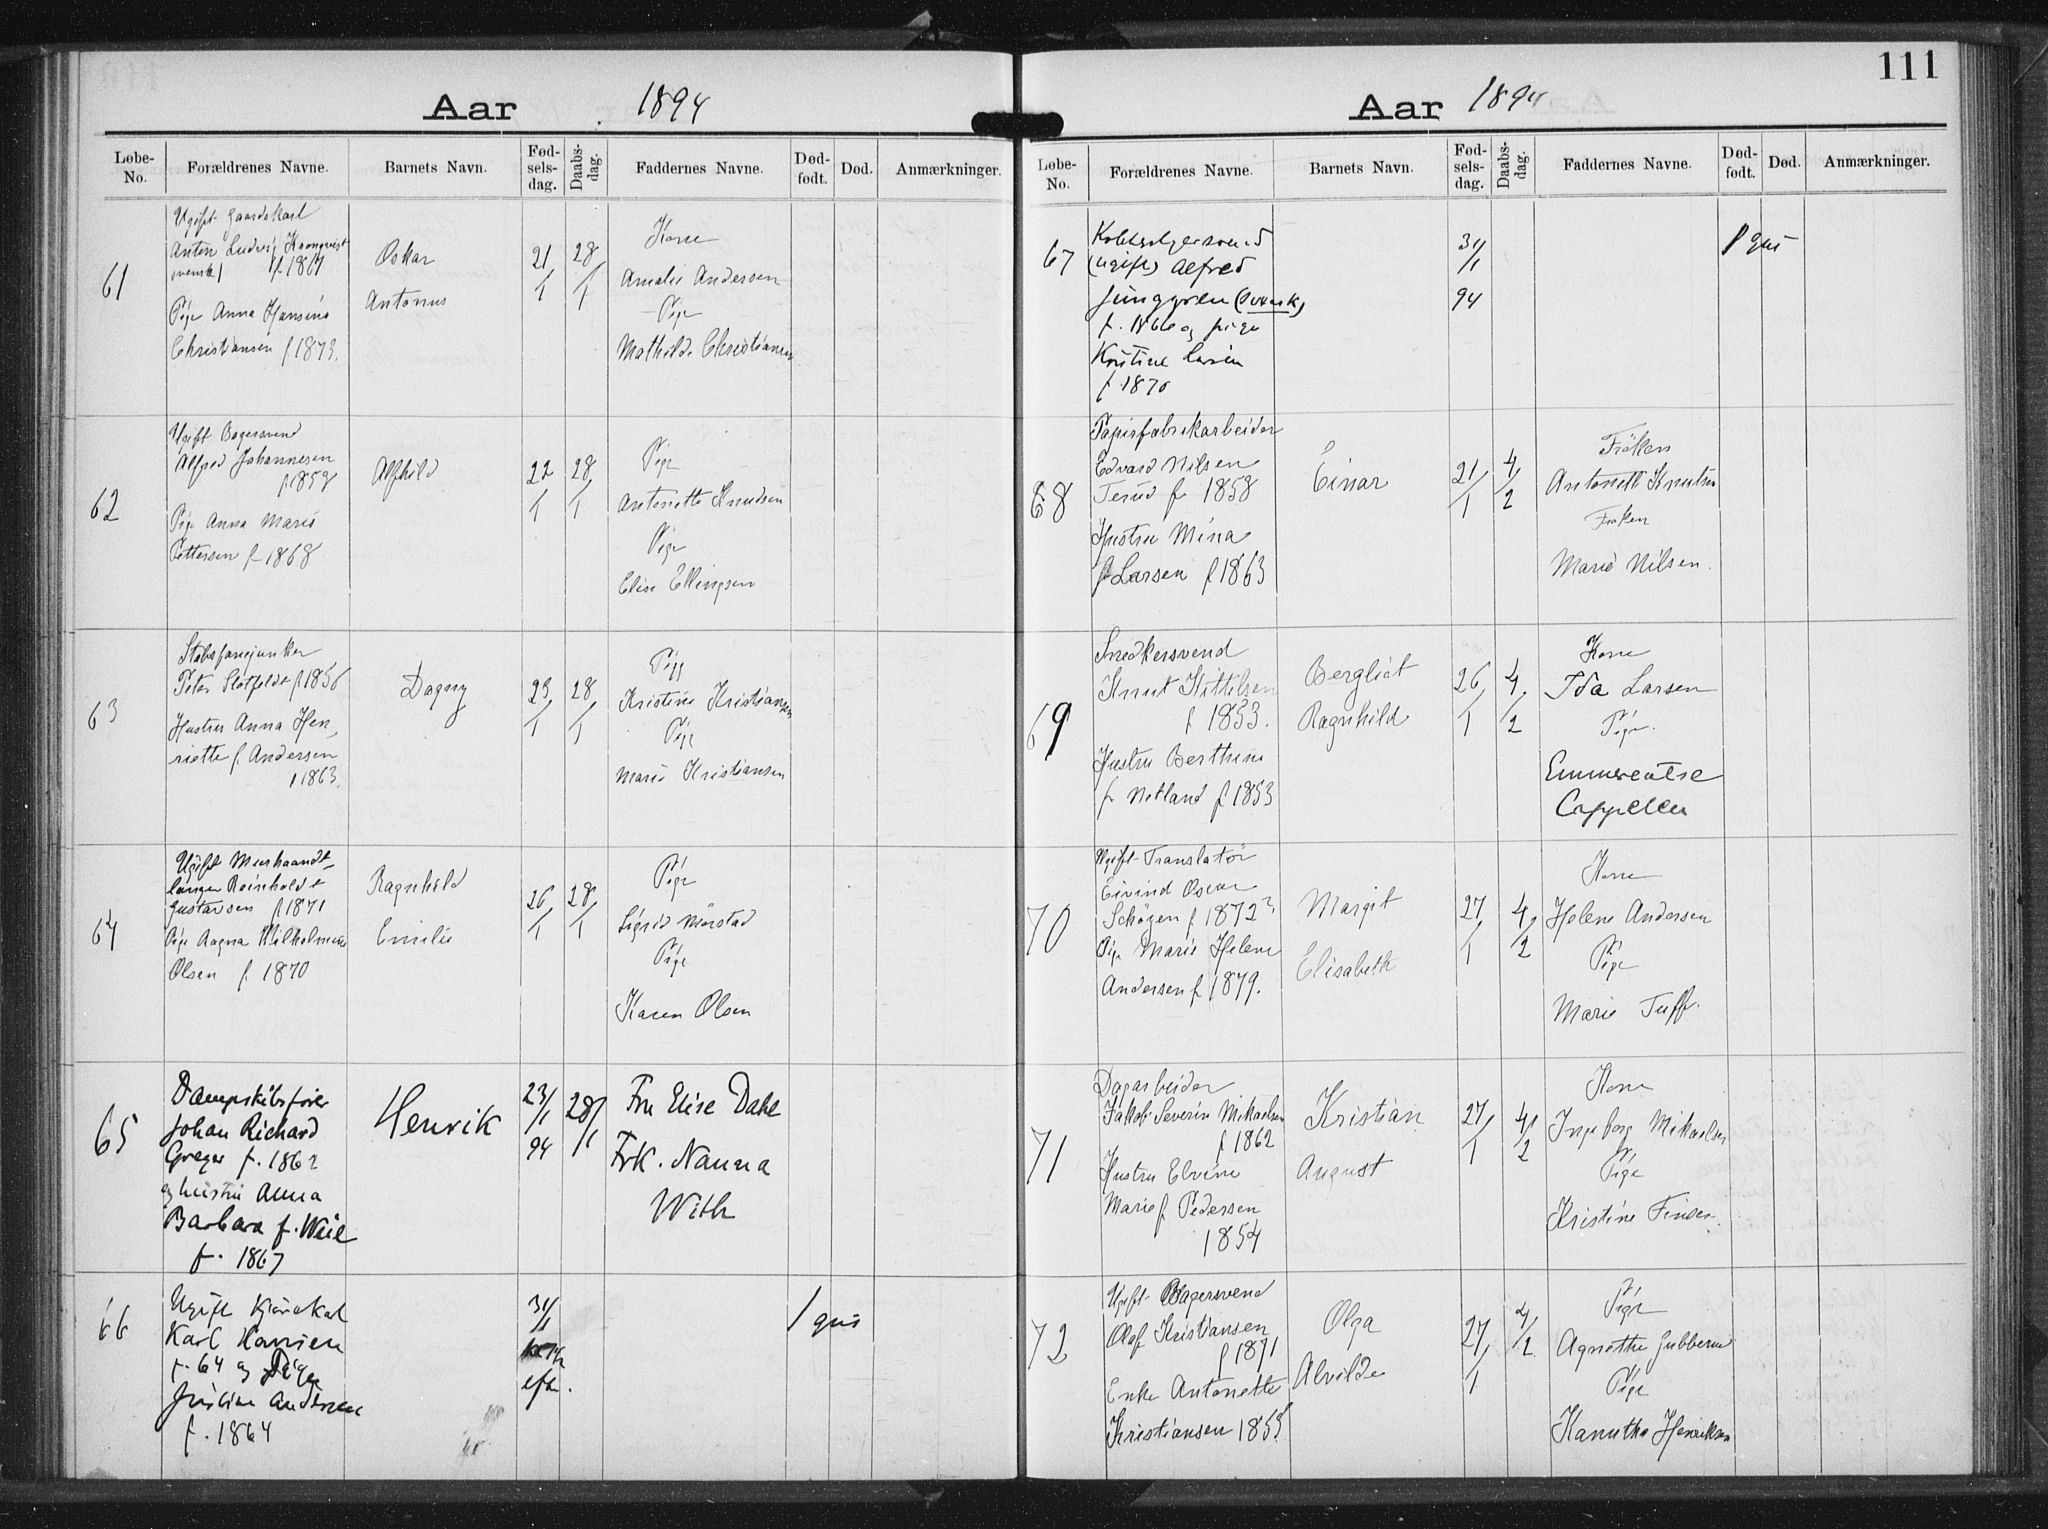 Aar 1894
Løbe-No.
Forældrenes Navne.
Barnets Navn.
Fød-sels-dag.
Daabs-dag.
Faddernes Navne.
Død-født.
Død.
Anmærkninger.
61
Ugift Gaardskarl
Anton Ludvig Kronqvist
svensk
Pige Anna Hansine
Christiansen f 1873.
Oskar
Antonius
21/1
28/1
Kone
Amalie Andersen
Pige
Mathilde Christiansen
62
Ugift Bagersvend
Alfred Johannesen
f 1859
Pige Anna Marie
Pettersen f 1868
Alfhild
22/1
28/1
Pige
Antonette Knudsen
Pige
Elise Ellingsen
63
Stabsfanejunker
Peter Slotfeldt f 1856
Hustru Anna Hen-
riette f. Andersen
f 1863.
Dagny
23/1
28/1
Pige
Kristine Kristiansen
Pige
Marie Kristiansen
64
Ugift Murhaandt-
langer Reinholdt
Gustavsen f 1871
Pige Wilhelmine
Olsen f. 1870
Ragnhild
Emilie
26/1
28/1
Pige
Sigrid Mørstad
Pige
Karen Olsen
65
Dampskibsfører
Johan Richard
Greger f. 1862
og hustru Anna
Barbara f. Weil
f. 1867
Henrik
23/1
94
28/1
Fru Elise Dahl
Frk. Nanna
With
66
Ugift Kjørekarl
Karl Hansen
f. 64 og Pige
Andersen
f. 1864
31/1
1 gut
Aar 1894
111
Løbe-No.
Forældrenes Navne.
Barnets Navn.
Fød-sels-dag.
Daabs-dag.
Faddernes Navne.
Død-født.
Død.
Anmærkninger.
67
(ugift) Alfred
Ljunggren (svensk)
f. 1866 og pige
Kristine Larsen
f. 1870
31/1
94
1 gut
68
Papirfabrikarbeider
Edvard Nilsen
Terud f 1858
Hustru Mina
f Larsen f 1863
Einar
21/1
4/2
Frøken
Antonette Knutsen
Frøken
Marie Nilsen.
69
Snedkersvend
Knut Kittilsen
f 1853.
Hustru Berthine
f Netland f 1853
Bergliot
Ragnhild
26/1
4/2
Kone
Ida Larsen
Pige.
Emmerentse
Cappelen
70
Ugift Translatør
Eivind Oscar
Schøyen f 1872?
Pige Marie Helene
Andersen f 1879.
Margit
Elisabeth
27/1
4/2
Kone
Helene Andersen
Pige
Marie Tuff.
71
Dagarbeider
Jakob Severin Mikaelsen
f 1862
Hustru Elvine
Marie f Pedersen
1854
Kristian
August
27/1
4/2
Kone
Ingeborg Mikaelsen
Pige
Kristine Finsen.
72
Ugift Bagersvend
Olaf Kristiansen
f 1871
Enke Antonette
Kristiansen 1855
Olga
Alvilde
27/1
4/2
Pige
Agnethe Gubberud
Pige
Kanutha Henriksen